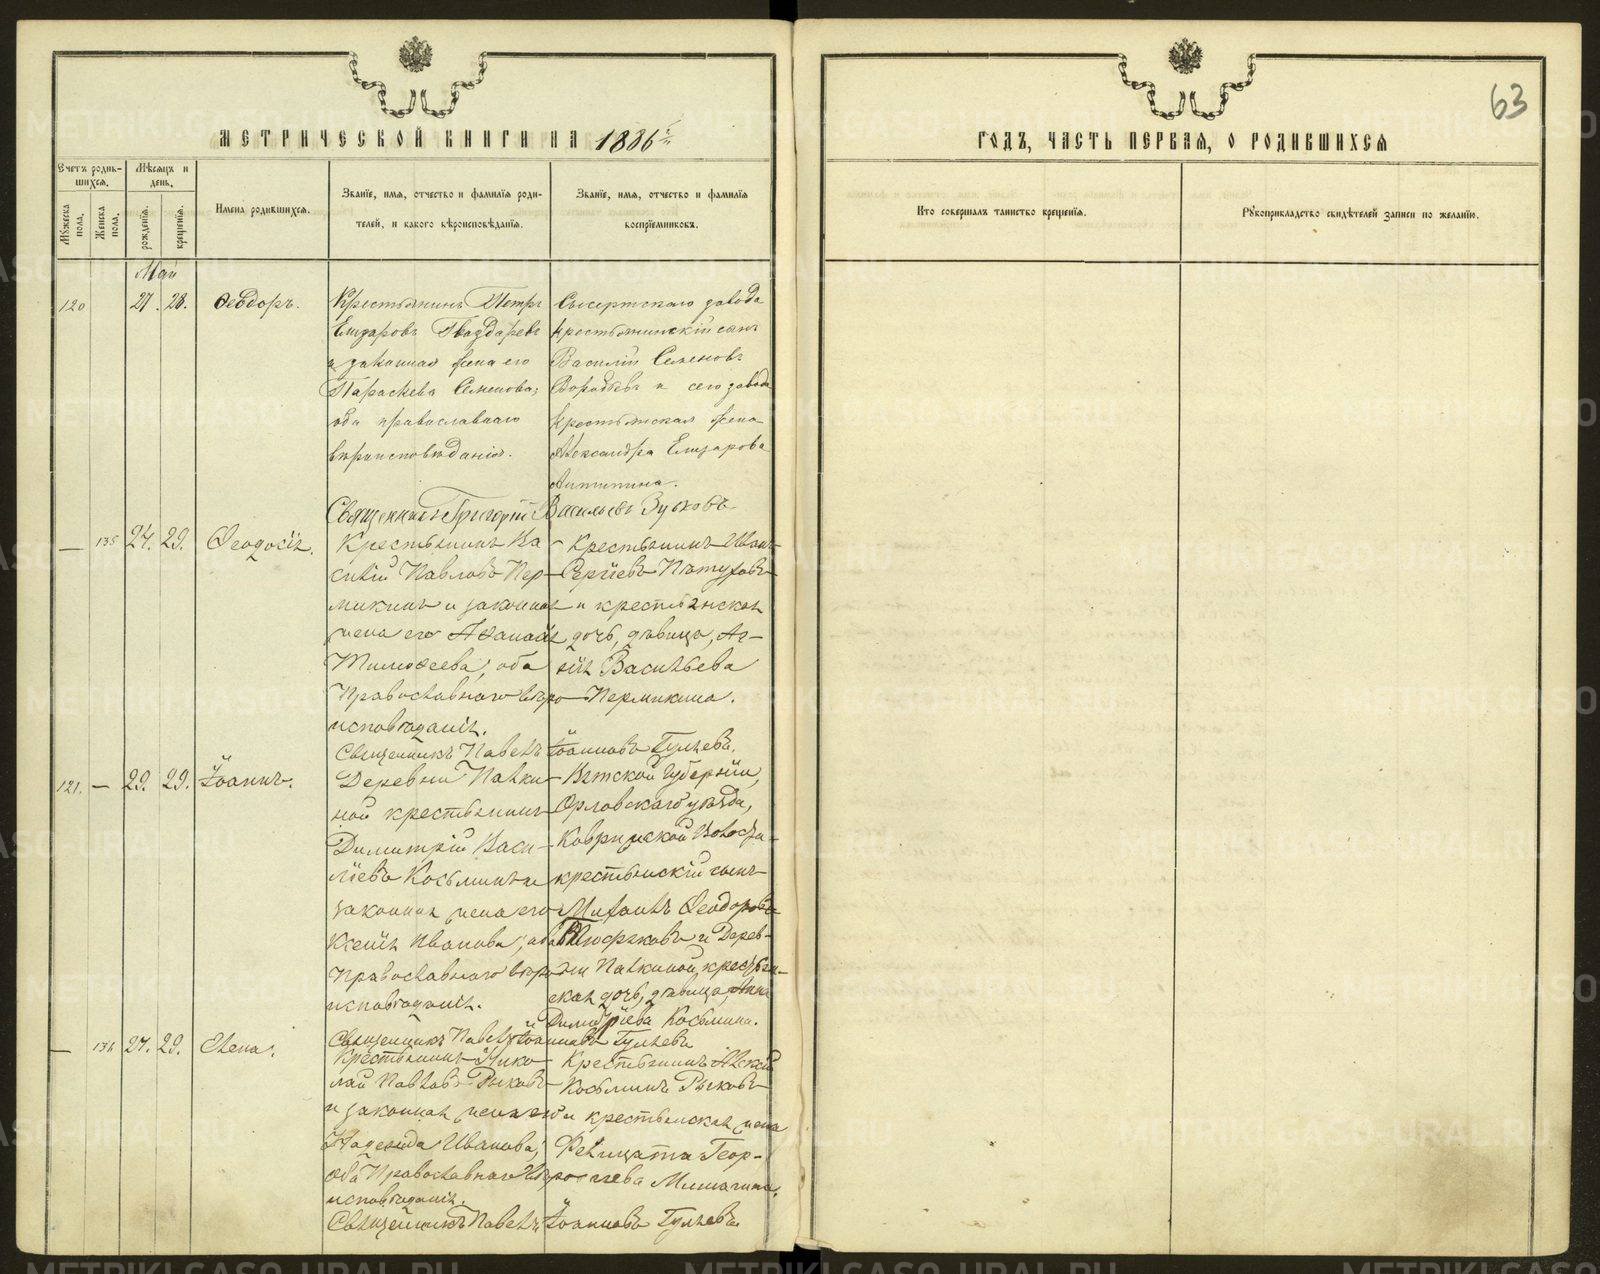 63
МЕТРИЧЕСКОЙ КНИГИ НА 1886й
ГОДЪ, ЧАСТЬ ПЕРВАЯ, О РОДИВШИХСЯ
Счетъ родив-
шихся.
Мѣсяцъ и
день.
Мужеска
пола.
Женска
пола.
рожденія.
крещенія.
Имена родившихся.
Званіе, имя, отчество и фамилія роди-
телей, и какого вѣроисповѣданія.
Званіе, имя, отчество и фамилія
воспріемниковъ.
Кто совершалъ таинство крещенія.
Рукоприкладство свидѣтелей записи по желанію.
Май
120
27. 28.
Ѳеодоръ.
Крестьянинъ Петръ
Елизаровъ
и законная жена его
Параскева Семенова;
оба православнаго
вѣроисповѣданія.
Сысертскаго завода
крестьянскій сынъ
Василій Семеновъ
и сего завода
крестьянская жена
Александра Елизарова
Антипина.
Священникъ Григорій Васильевъ Зубковъ
— 135 24. 29.
Ѳеодосія.
Крестьянинъ Ва-
силій Павловъ Пер-
микинъ и законная
жена его
Тимоѳеева; оба
Православнаго вѣро-
исповѣданія.
Крестьянинъ Иванъ
Сергіевъ Пѣтуховъ
и крестьянская
дочь, дѣвица,
Васильева
Пермикина.
Священникъ Павелъ Іоанновъ Гуляевъ.
121. — 29. 29.
Іоаннъ.
Деревни Палки-
ной крестьянинъ
Димитрій Васи-
ліевъ Косьминъ и
законная жена его
Ксенія Иванова; оба
Православнаго вѣро-
исповѣданія.
Вятской губерніи,
Орловскаго уѣзда,
волости
крестьянскій сынъ
Михаилъ Ѳеодоровъ
и Дерев-
ни Палкиной, крестьян-
ская дочь, дѣвица, Анна
Димитріева Косьмина.
Священникъ Павелъ Іоанновъ Гуляевъ
— 136 27. 29.
Елена.
Крестьянинъ Нико-
лай Павловъ Рыковъ
и законная жена его
Надежда Иванова;
оба Православнаго вѣро-
исповѣданія.
Крестьянинъ Алексій
Косьминъ Рыковъ
и крестьянская жена
Фелицата Геор-
гіева
Священникъ Павелъ Іоанновъ Гуляевъ
METRIKI.GASO-URAL.RU